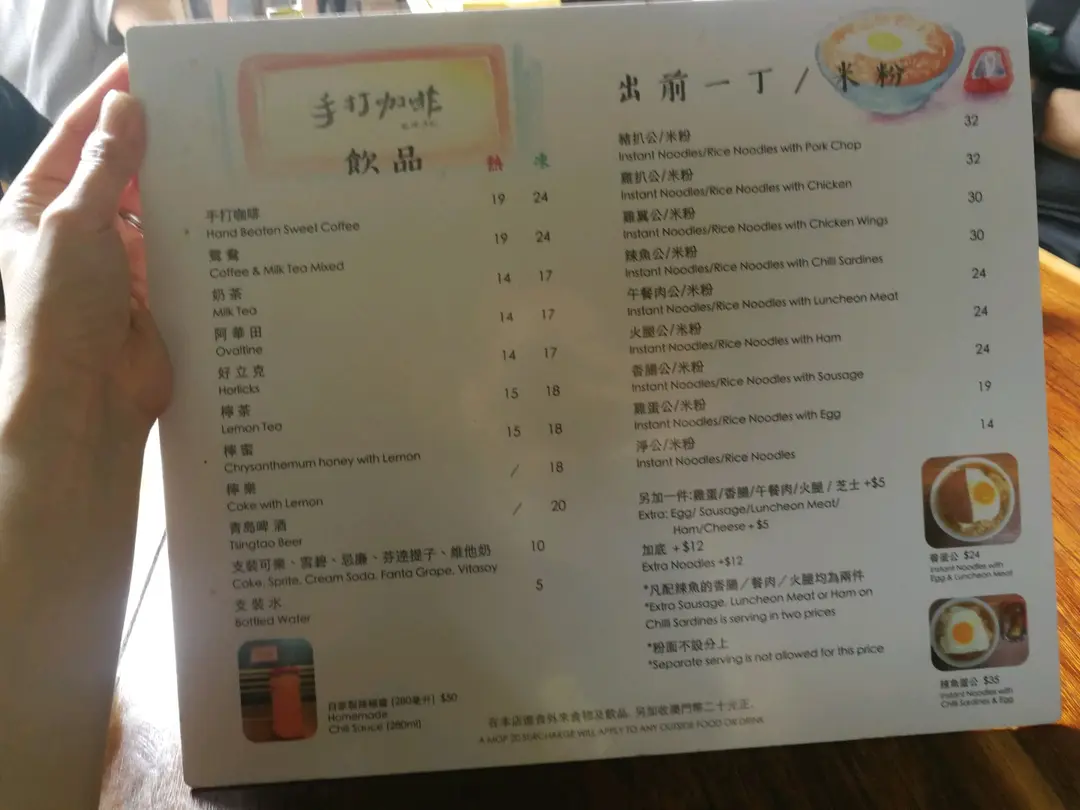 手打咖啡
飲品 熱 凍
手打咖啡 19 24
Hand Beaten Sweet Coffee
鴛鴦 19 24
Coffee & Milk Tea Mixed
奶茶 14 17
Milk Tea
阿華田 14 17
Ovaltine
好立克 14 17
Horlicks
檸茶 15 18
Lemon Tea
檸蜜 15 18
Chrysanthemum honey with Lemon
檸樂 / 18
Coke with Lemon
青島啤酒 / 20
Tsingtao Beer
支裝可樂、雪碧、忌廉、芬達提子、維他奶 10
Coke, Sprite, Cream Soda, Fanta Grape, Vitasoy
支裝水 5
Bottled Water
自家製辣椒醬 [280毫升] $50
Homemade
Chili Sauce [280ml]
出前一丁 / 米粉
豬扒公/米粉 32
Instant Noodles/Rice Noodles with Pork Chop
雞扒公/米粉 32
Instant Noodles/Rice Noodles with Chicken
雞翼公/米粉 30
Instant Noodles/Rice Noodles with Chicken Wings
辣魚公/米粉 30
Instant Noodles/Rice Noodles with Chilli Sardines
午餐肉公/米粉 24
Instant Noodles/Rice Noodles with Luncheon Meat
火腿公/米粉 24
Instant Noodles/Rice Noodles with Ham
香腸公/米粉 24
Instant Noodles/Rice Noodles with Sausage
雞蛋公/米粉 19
Instant Noodles/Rice Noodles with Egg
淨公/米粉 14
Instant Noodles/Rice Noodles
另加一件:雞蛋/香腸/午餐肉/火腿 / 芝士 +$5
Extra: Egg/ Sausage/Luncheon Meat/
Ham/Cheese + $5
加底 +$12
Extra Noodles +$12
*凡配辣魚的香腸／餐肉／火腿均為兩件
*Extra Sausage, Luncheon Meat or Ham on
Chilli Sardines is serving in two prices
*粉面不設分上
*Separate serving is not allowed for this price
餐蛋公 $24
Instant Noodles with
Egg & Luncheon Meat
辣魚蛋公 $35
Instant Noodles with
Chilli Sardines & Egg
在本店進食外來食物及飲品, 另加收澳門幣二十元正.
A MOP 20 SURCHARGE WILL APPLY TO ANY OUTSIDE FOOD OR DRINK